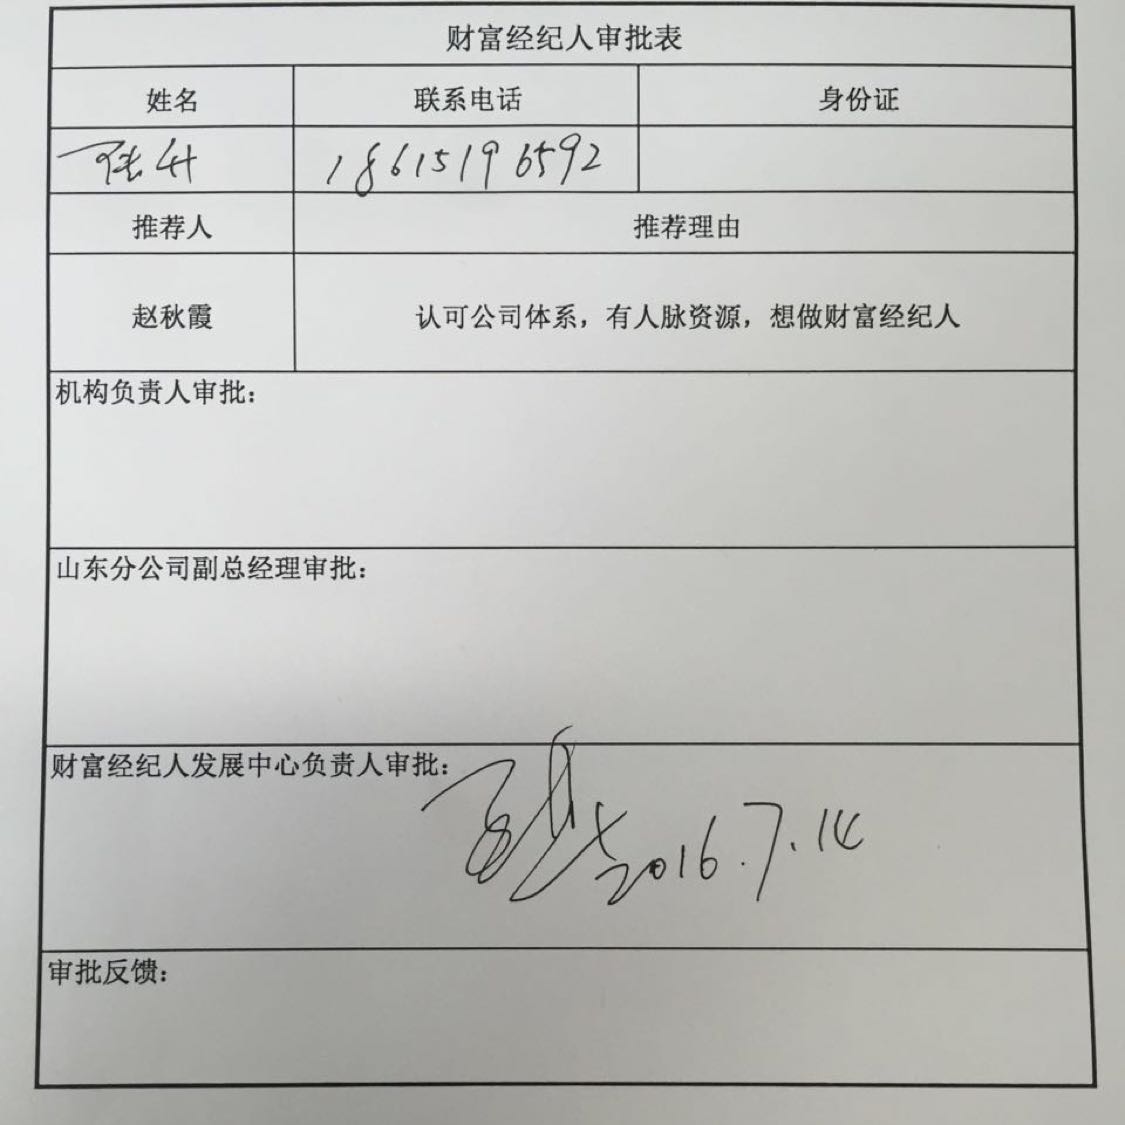 财富经纪人审批表
姓名 联系电话 身份证
18615196592
推荐人 推荐理由
赵秋霞 认可公司体系，有人脉资源，想做财富经纪人
机构负责人审批：
山东分公司副总经理审批：
财富经纪人发展中心负责人审批：
2016.7.14
审批反馈：